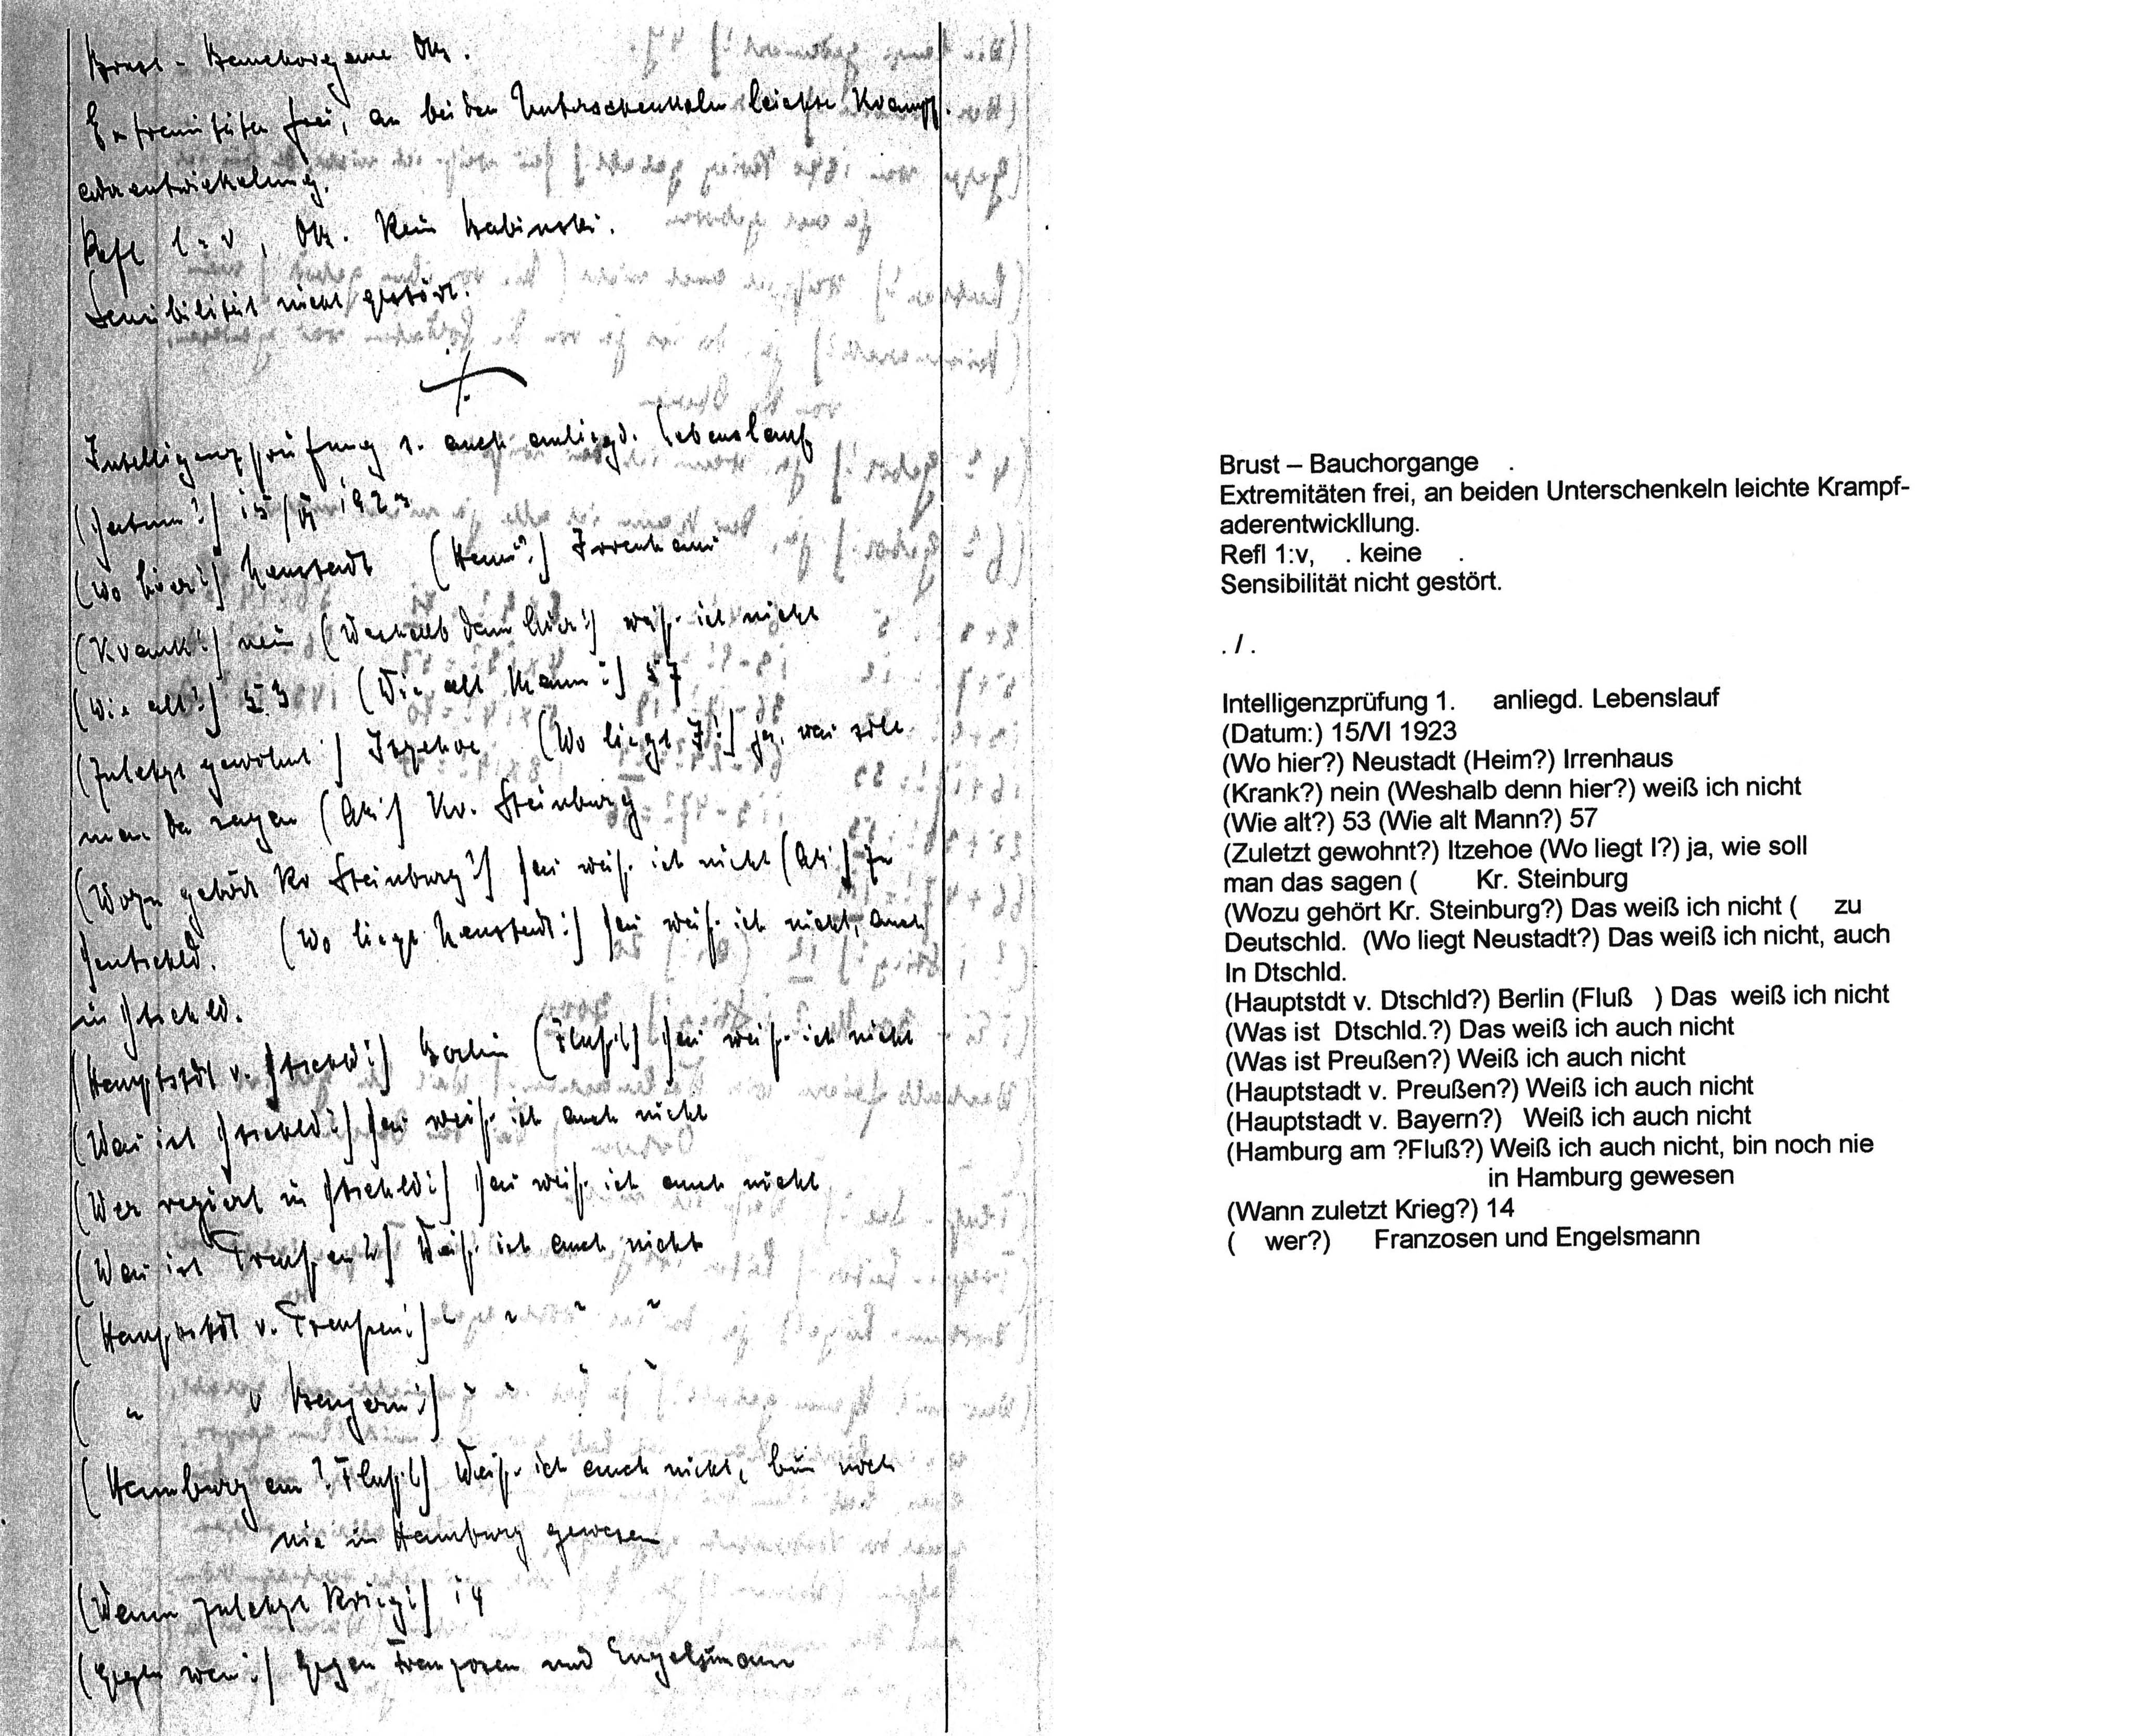 Brust - Bauchorgane Ob.
Extremitäten frei, an beiden Unterschenkeln leichte Krampf-
aderentwickelung.
Refl l = v, Ob. Kein Babinski.
Sensibilität nicht gestört.
./.
Intelligenzprüfung s. auch anliegd. Lebenslauf
(Datum?) 15/VI 1923
(Wo hier?) Neustadt (Haus?) Irrenhaus
(Krank?) nein (Weshalb denn hier?) weiß ich nicht
(Wie alt?) 53 (Wie alt Mann?) 57
(Zuletzt gewohnt?) Itzehoe (Wo liegt I?) ja, wie soll
man das sagen ( Kr. Steinburg
(Wozu gehört Kr Steinburg?) Das weiß ich nicht ( Zu
Deutschld. (Wo liegt Neustadt?) Das weiß ich nicht, auch
in Dtschld.
(Hauptstdt v. Dtschld?) Berlin (Fluß?) Das weiß ich nicht
(Was ist Dtschld?) Das weiß ich auch nicht
(Wer regiert in Dtschld?) Das weiß ich auch nicht
(Was ist Preußen?) Weiß ich auch nicht
(Hauptstdt v. Preußen?) " " " "
( " v Bayern?) " " " "
(Hamburg am ? Fluß?) Weiß ich auch nicht, bin noch
nie in Hamburg gewesen
(Wann zuletzt Krieg?) 14
(Gegen wen?) Gegen Franzosen und Engelsmann
Brust – Bauchorgange .
Extremitäten frei, an beiden Unterschenkeln leichte Krampf-
aderentwickllung.
Refl 1:v, . keine .
Sensibilität nicht gestört.
. / .
Intelligenzprüfung 1. anliegd. Lebenslauf
(Datum:) 15/VI 1923
(Wo hier?) Neustadt (Heim?) Irrenhaus
(Krank?) nein (Weshalb denn hier?) weiß ich nicht
(Wie alt?) 53 (Wie alt Mann?) 57
(Zuletzt gewohnt?) Itzehoe (Wo liegt I?) ja, wie soll
man das sagen ( Kr. Steinburg
(Wozu gehört Kr. Steinburg?) Das weiß ich nicht ( zu
Deutschld. (Wo liegt Neustadt?) Das weiß ich nicht, auch
In Dtschld.
(Hauptstdt v. Dtschld?) Berlin (Fluß ) Das weiß ich nicht
(Was ist Dtschld.?) Das weiß ich auch nicht
(Was ist Preußen?) Weiß ich auch nicht
(Hauptstadt v. Preußen?) Weiß ich auch nicht
(Hauptstadt v. Bayern?) Weiß ich auch nicht
(Hamburg am ?Fluß?) Weiß ich auch nicht, bin noch nie
in Hamburg gewesen
(Wann zuletzt Krieg?) 14
( wer?) Franzosen und Engelsmann